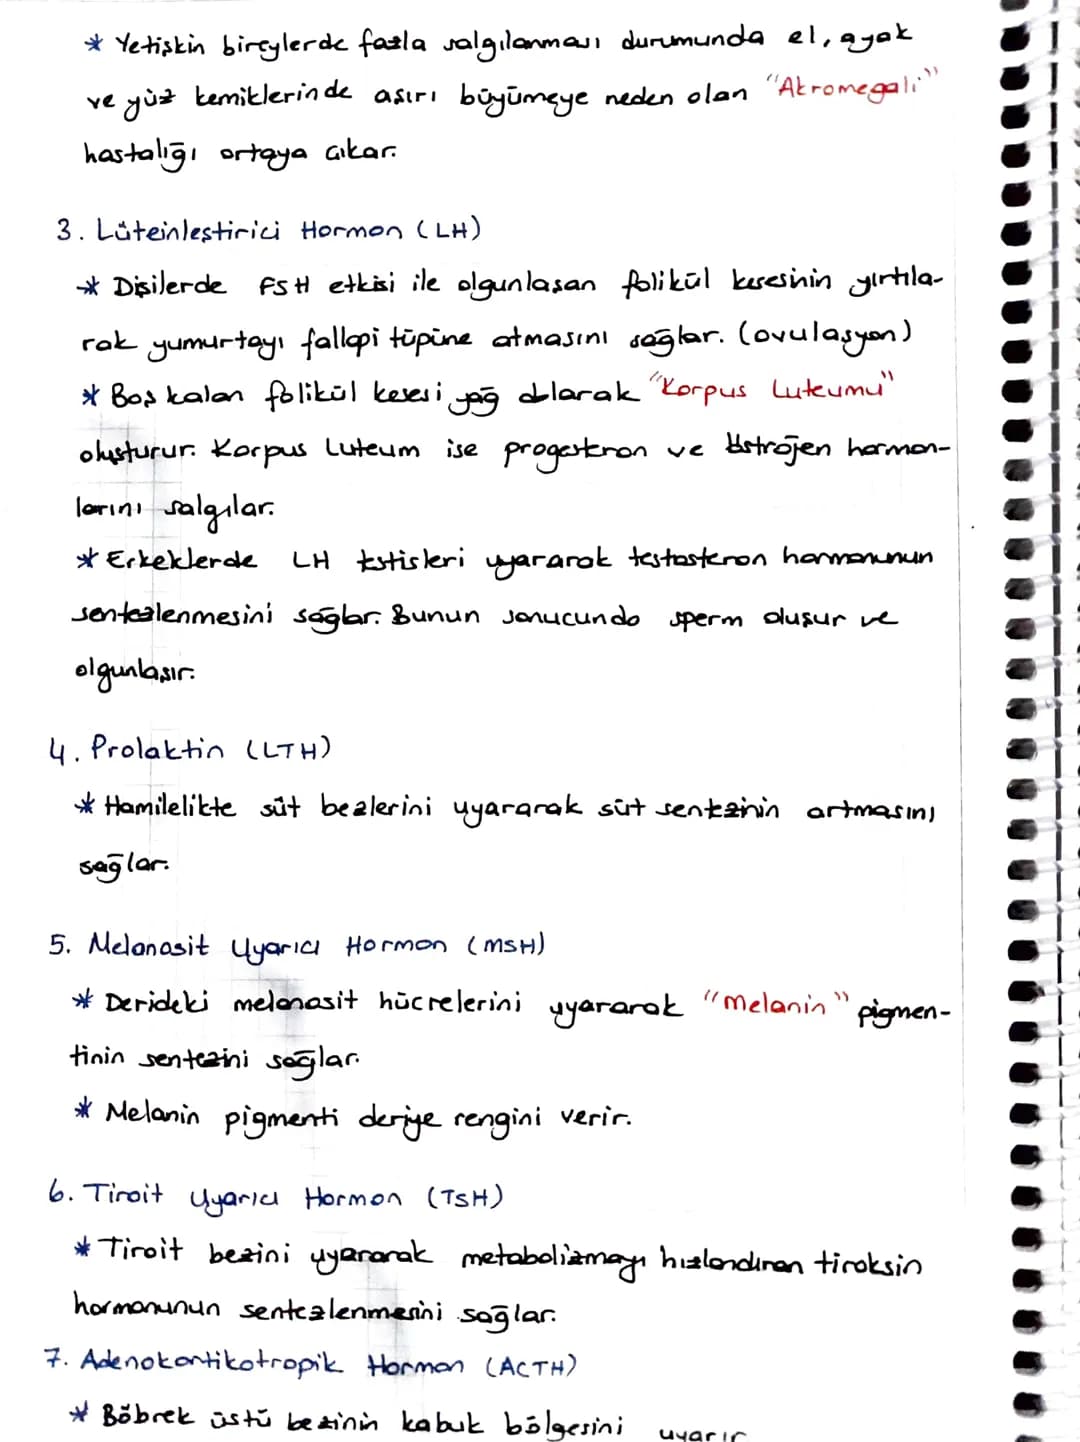 * Yetişkin bireylerde fazla salgılanması durumunda el, ayak
ve yüz kemiklerinde aşırı büyümeye neden olan "Akromegali"
hastalığı ortaya çıkar.
3. Lüteinleştirici Hormon (LH)
* Dişilerde FSH etkisi ile olgunlaşan folikül kesesinin yırtıla-
rak yumurtayı fallopi tüpüne atmasını sağlar. (ovulasyon)
* Boş kalan folikül kesesi yağ dolarak "Korpus Luteumu"
oluşturur. Korpus Luteum ise progesteron ve östrojen hormon-
larını salgılar.
* Erkeklerde LH testisleri uyararak testosteron hormonunun
sentezlenmesini sağlar. Bunun sonucunda sperm oluşur ve
olgunlaşır.
4. Prolaktin (LTH)
* Hamilelikte süt bezlerini uyararak süt sentezinin artmasını
sağlar.
5. Melonosit Uyarıcı Hormon (MSH)
* Derideki melonosit hücrelerini uyararak "Melanin" pigmen-
tinin sentezini sağlar.
* Melanin pigmenti deriye rengini verir.
6. Tiroit Uyarıcı Hormon (TSH)
* Tiroit bezini uyararak metabolizmayı hızlandıran tiroksin
hormonunun sentezlenmesini sağlar.
7. Adenokortikotropik Hormon (ACTH)
* Böbrek üstü bezinin kabuk bölgesini uyarır